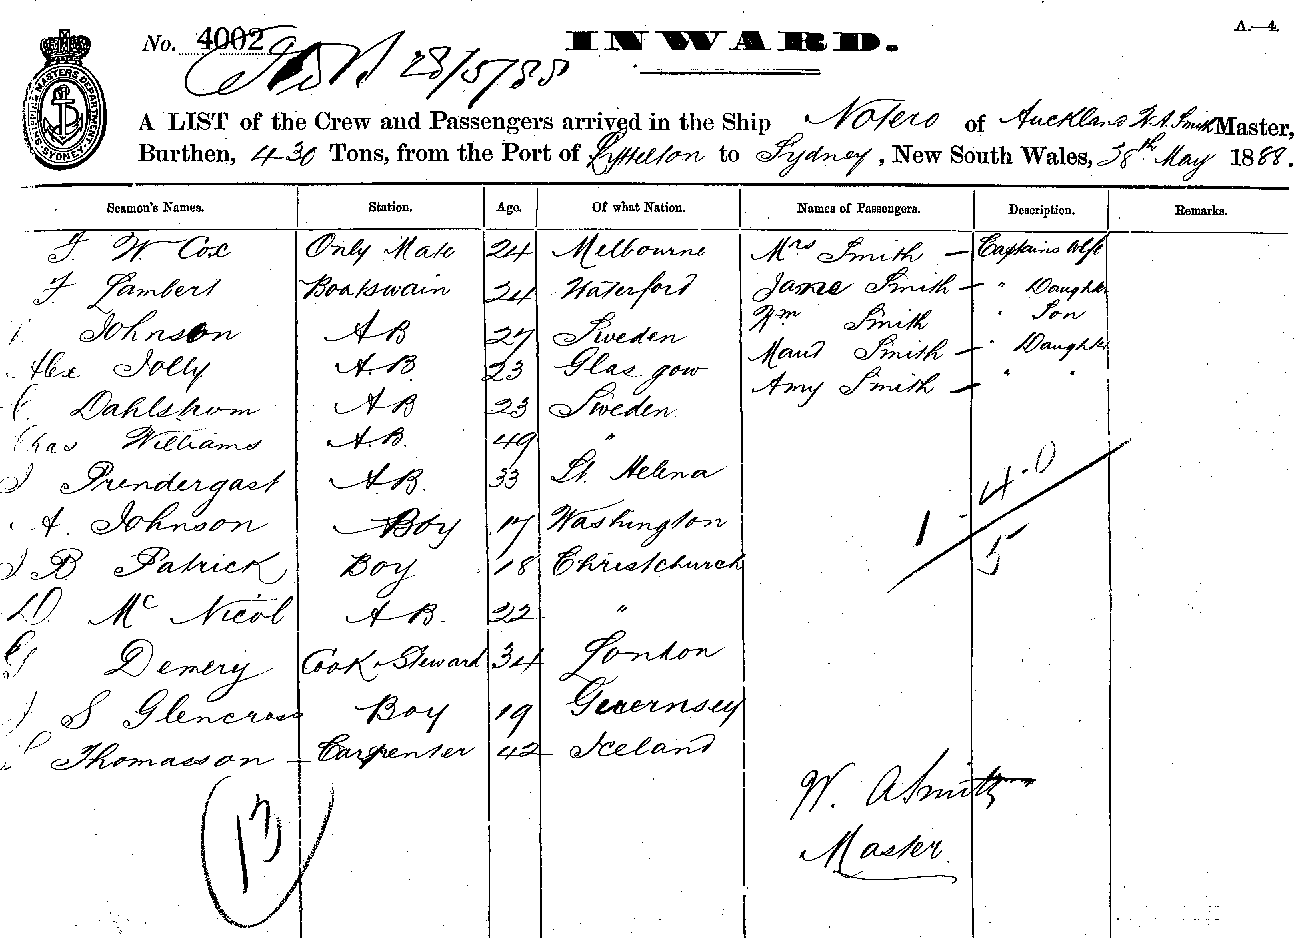 No. 4002 INWARD. A.—4.
28/5/88
SHIPPING MASTERS DEPARTMENT SYDNEY
A LIST of the Crew and Passengers arrived in the Ship Notero of Auckland W.A. Smith Master,
Burthen, 430 Tons, from the Port of Lyttelton to Sydney, New South Wales, 28th May 1888.
Seamen's Names. Station. Age. Of what Nation. Names of Passengers. Description. Remarks.
F W Cox Only Mate 24 Melbourne Mrs Smith — Captains Wife
F Lambert Boatswain 24 Waterford Jane Smith — " Daughter
Johnson AB 27 Sweden Wm Smith " Son
Alex Jolly AB 23 Glasgow Maud Smith — " Daughter
C Dahlstrom AB 23 Sweden Amy Smith — " "
Chas Williams AB. 49 "
J Prendergast AB. 33 St Helena
A. Johnson Boy 17 Washington
J B Patrick Boy 18 Christchurch
D McNicol AB. 22 "
G Demery Cook & Steward 34 London
J S Glencross Boy 19 Guernsey
Thomasson — Carpenter 42 Iceland
1 4-0
5
13
W. A Smith
Master